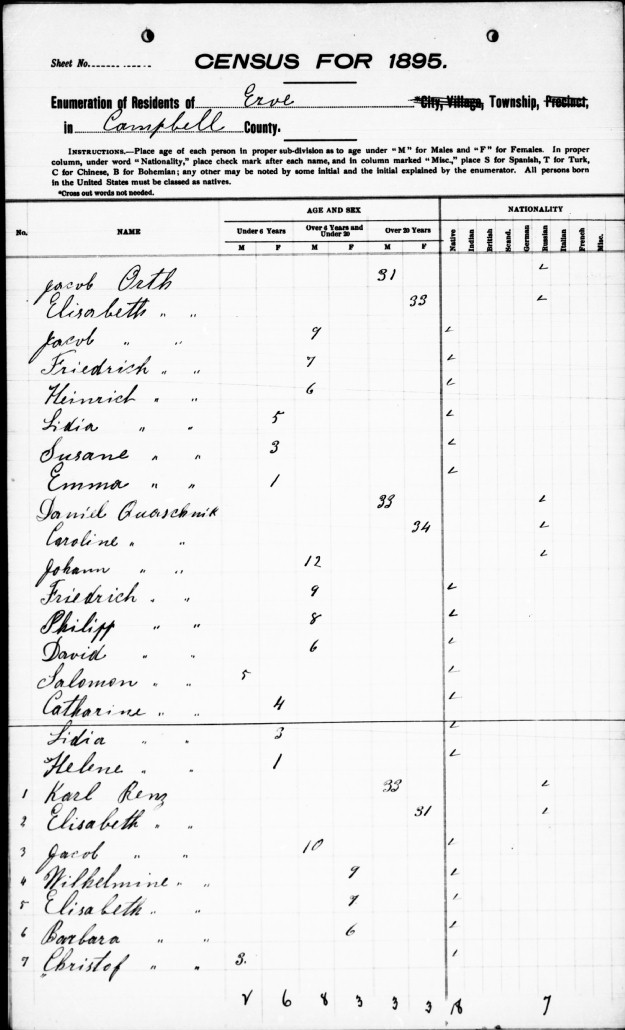 Sheet No.
CENSUS FOR 1895.
Enumeration of Residents of Erve *City, Village, Township, Precinct,
in Campbell County.
INSTRUCTIONS.—Place age of each person in proper sub-division as to age under "M" for Males and "F" for Females. In proper
column, under word "Nationality," place check mark after each name, and in column marked "Misc.," place S for Spanish, T for Turk,
C for Chinese, B for Bohemian; any other may be noted by some initial and the initial explained by the enumerator. All persons born
in the United States must be classed as natives.
*Cross out words not needed.
AGE AND SEX NATIONALITY
No. NAME Under 6 Years Over 6 Years and Under 20 Over 20 Years Native Indian British Scand. German Russian Italian French Misc.
M F M F M F
Jacob Orth 31 ✓
Elisabeth " " 33 ✓
Jacob " " 9 ✓
Friedrich " " 7 ✓
Heinrich " " 6 ✓
Lidia " " 5 ✓
Susane " " 3 ✓
Emma " " 1 ✓
Daniel Quaschnik 33 ✓
Caroline " " 34 ✓
Johann " " 12 ✓
Friedrich " " 9 ✓
Philipp " " 8 ✓
David " " 6 ✓
Salomon " " 5 ✓
Catharine " " 4 ✓
Lidia " " 3 ✓
Helene " " 1 ✓
1 Karl Renz 33 ✓
2 Elisabeth " " 31 ✓
3 Jacob " " 10 ✓
4 Wilhelmine " " 9 ✓
5 Elisabeth " " 7 ✓
6 Barbara " " 6 ✓
7 Christof " " 3. ✓
2 6 8 3 3 3 18 7